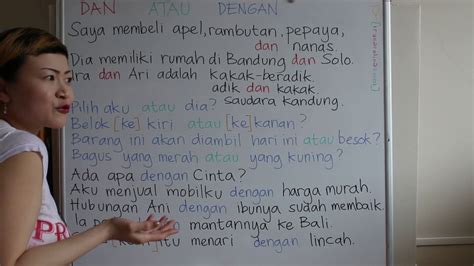 DAN ATAU DENGAN
Saya membeli apel, rambutan, pepaya,
dan nanas.
Dia memiliki rumah di Bandung dan Solo.
Ira dan Ari adalah kakak-beradik.
adik dan kakak.
saudara kandung.
Pilih aku atau dia?
Belok [ke] kiri atau [ke] kanan?
Barang ini akan diambil hari ini atau besok?
Bagus yang merah atau yang kuning?
Ada apa dengan Cinta?
Aku menjual mobilku dengan harga murah.
Hubungan Ani dengan ibunya sudah membaik.
Ia mantannya ke Bali.
itu menari dengan lincah.